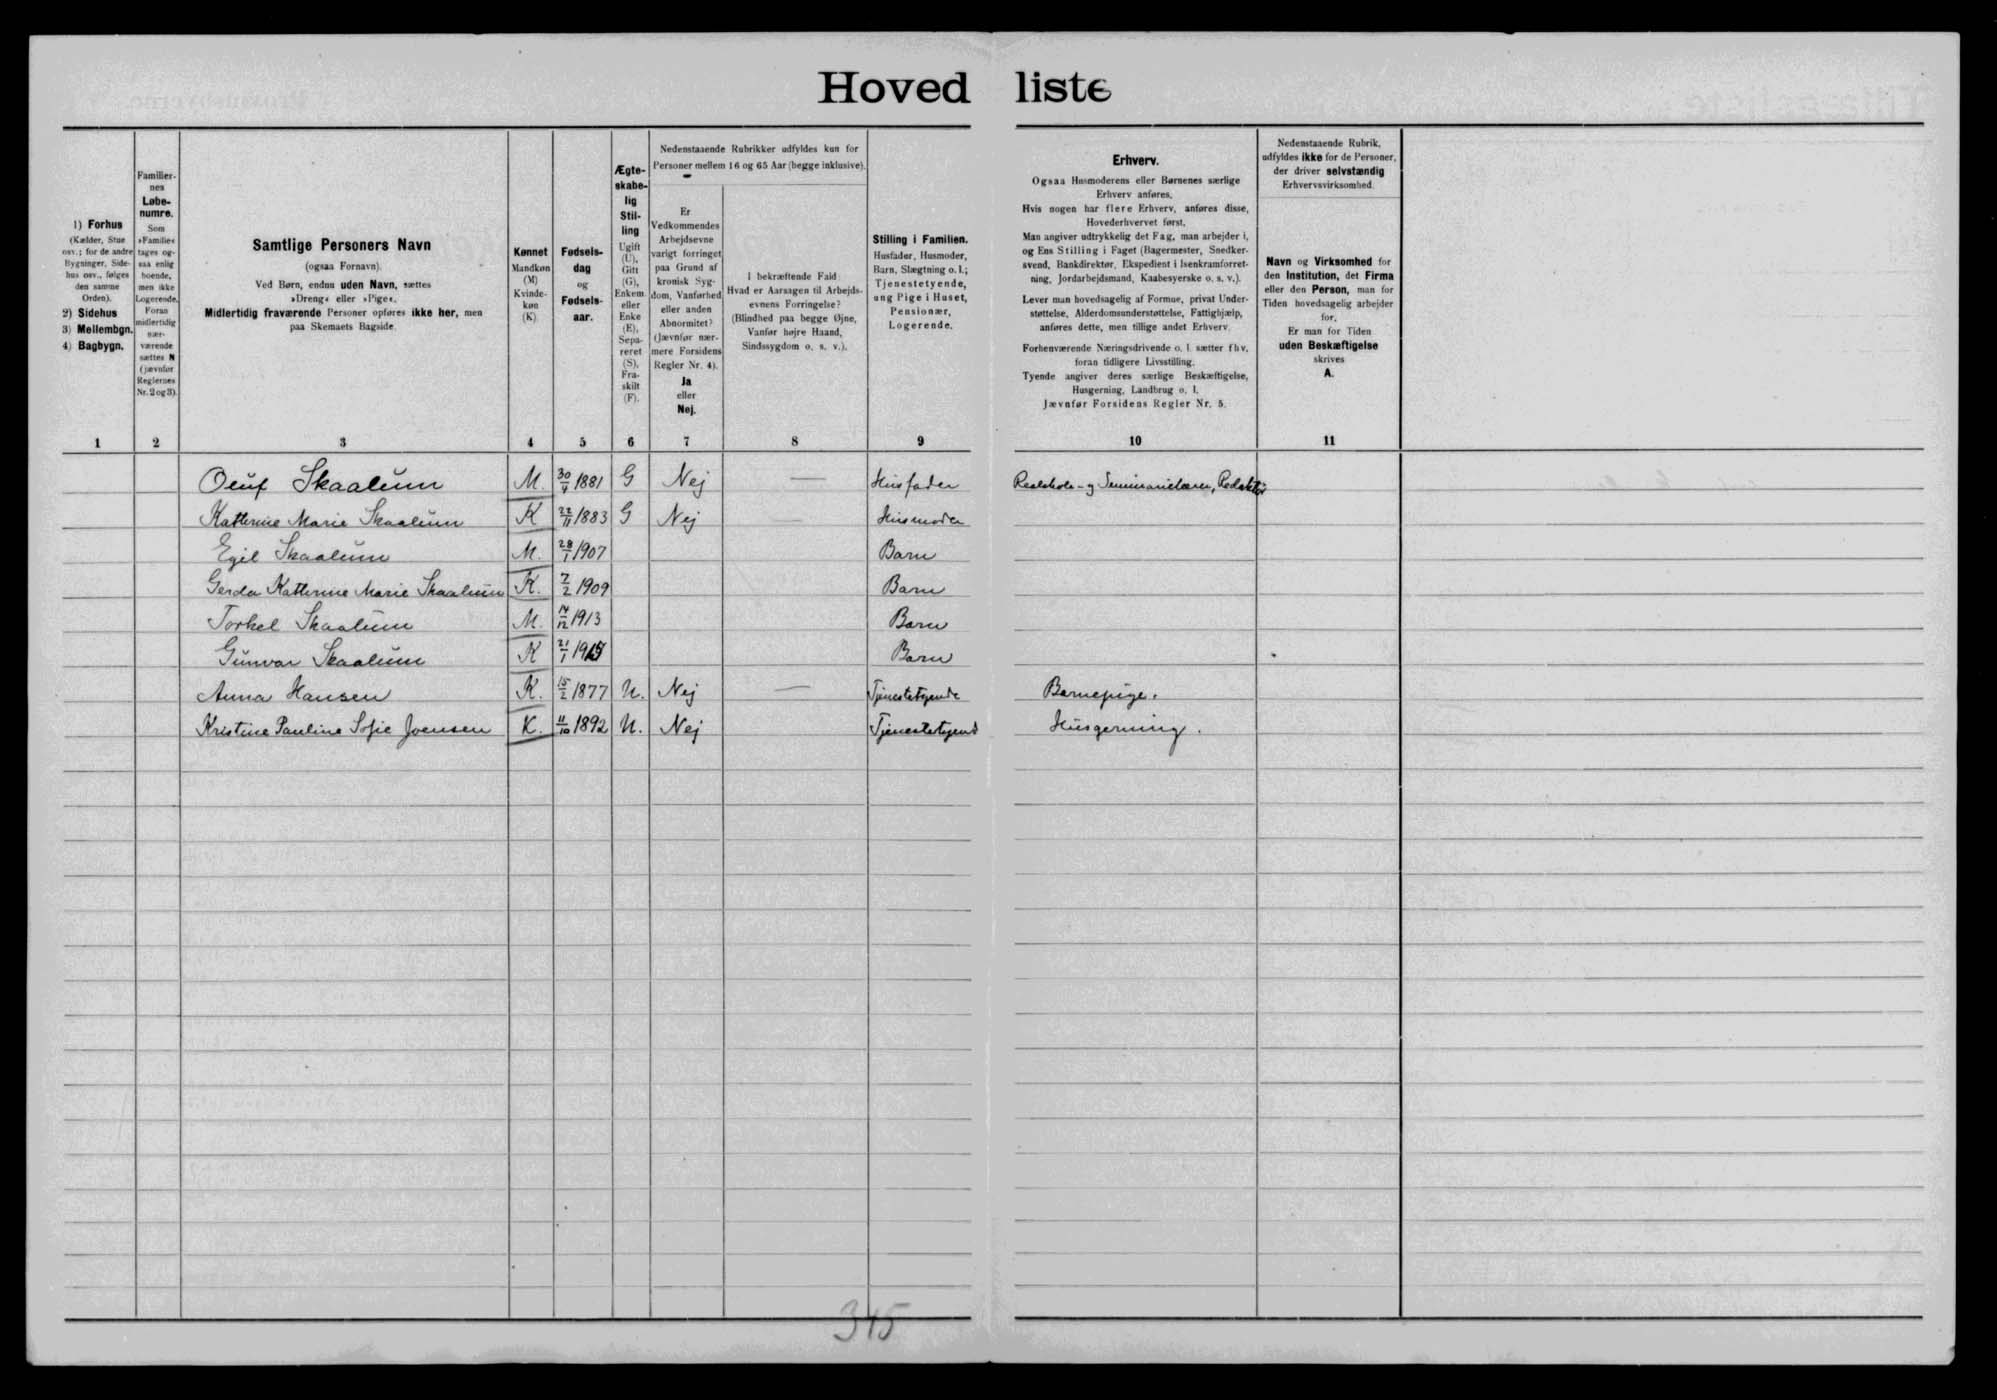 Hovedliste
1) Forhus
(Kælder, Stue
osv.; for de andre
Bygninger, Side-
hus osv., følges
den samme
Orden).
2) Sidehus
3) Mellembgn.
4) Bagbygn.
Familier-
nes
Løbe-
numre.
Som
»Familie«
tages og-
saa enlig
boende,
men ikke
Logerende.
Foran
midlertidig
nær-
værende
sættes N
(jævnfør
Reglernes
Nr. 2 og 3).
Samtlige Personers Navn
(ogsaa Fornavn).
Ved Børn, endnu uden Navn, sættes
»Dreng« eller »Pige«.
Midlertidig fraværende Personer opføres ikke her, men
paa Skemaets Bagside.
Kønnet
Mandkøn
(M)
Kvinde-
køn
(K).
Fødsels-
dag
og
Fødsels-
aar.
Ægte-
skabe-
lig
Stil-
ling
Ugift
(U),
Gift
(G),
Enkem.
eller
Enke
(E),
Sepa-
reret
(S),
Fra-
skilt
(F).
Nedenstaaende Rubrikker udfyldes kun for
Personer mellem 16 og 65 Aar (begge inklusive).
Er
Vedkommendes
Arbejdsevne
varigt forringet
paa Grund af
kronisk Syg-
dom, Vanførhed
eller anden
Abnormitet?
(Jævnfør nær-
mere Forsidens
Regler Nr. 4).
Ja
eller
Nej.
I bekræftende Fald
Hvad er Aarsagen til Arbejds-
evnens Forringelse?
(Blindhed paa begge Øjne,
Vanfør højre Haand,
Sindssygdom o. s. v.).
Stilling i Familien.
Husfader, Husmoder,
Barn, Slægtning o. l.;
Tjenestetyende,
ung Pige i Huset,
Pensionær,
Logerende.
Erhverv.
Ogsaa Husmoderens eller Børnenes særlige
Erhverv anføres.
Hvis nogen har flere Erhverv, anføres disse,
Hovederhvervet først.
Man angiver udtrykkelig det Fag, man arbejder i,
og Ens Stilling i Faget (Bagermester, Snedker-
svend, Bankdirektør, Ekspedient i Isenkramforret-
ning, Jordarbejdsmand, Kaabesyerske o. s. v.).
Lever man hovedsagelig af Formue, privat Under-
støttelse, Alderdomsunderstøttelse, Fattighjælp,
anføres dette, men tillige andet Erhverv.
Forhenværende Næringsdrivende o. l. sætter fhv.
foran tidligere Livsstilling.
Tyende angiver deres særlige Beskæftigelse,
Husgerning, Landbrug o. l.
Jævnfør Forsidens Regler Nr. 5.
Nedenstaaende Rubrik,
udfyldes ikke for de Personer,
der driver selvstændig
Erhvervsvirksomhed.
Navn og Virksomhed for
den Institution, det Firma
eller den Person, man for
Tiden hovedsagelig arbejder
for.
Er man for Tiden
uden Beskæftigelse
skrives
A.
1 2 3 4 5 6 7 8 9 10 11
Oluf Skaalum M. 30/4 1881 G Nej — Husfader Realskole- og Seminarielærer, Redaktør
Kathrine Marie Skaalum K 22/11 1883 G Nej — Husmoder
Egil Skaalum M. 28/1 1907 Barn
Gerda Kathrine Marie Skaalum K. 7/2 1909 Barn
Torkel Skaalum M. 14/12 1913 Barn
Gunvor Skaalum K 21/1 1915 Barn
Anna Hansen K. 15/2 1877 U. Nej — Tjenestetyende Barnepige.
Kristine Pauline Sofie Joensen K. 11/10 1892 U. Nej Tjenestetyend Husgerning.
345